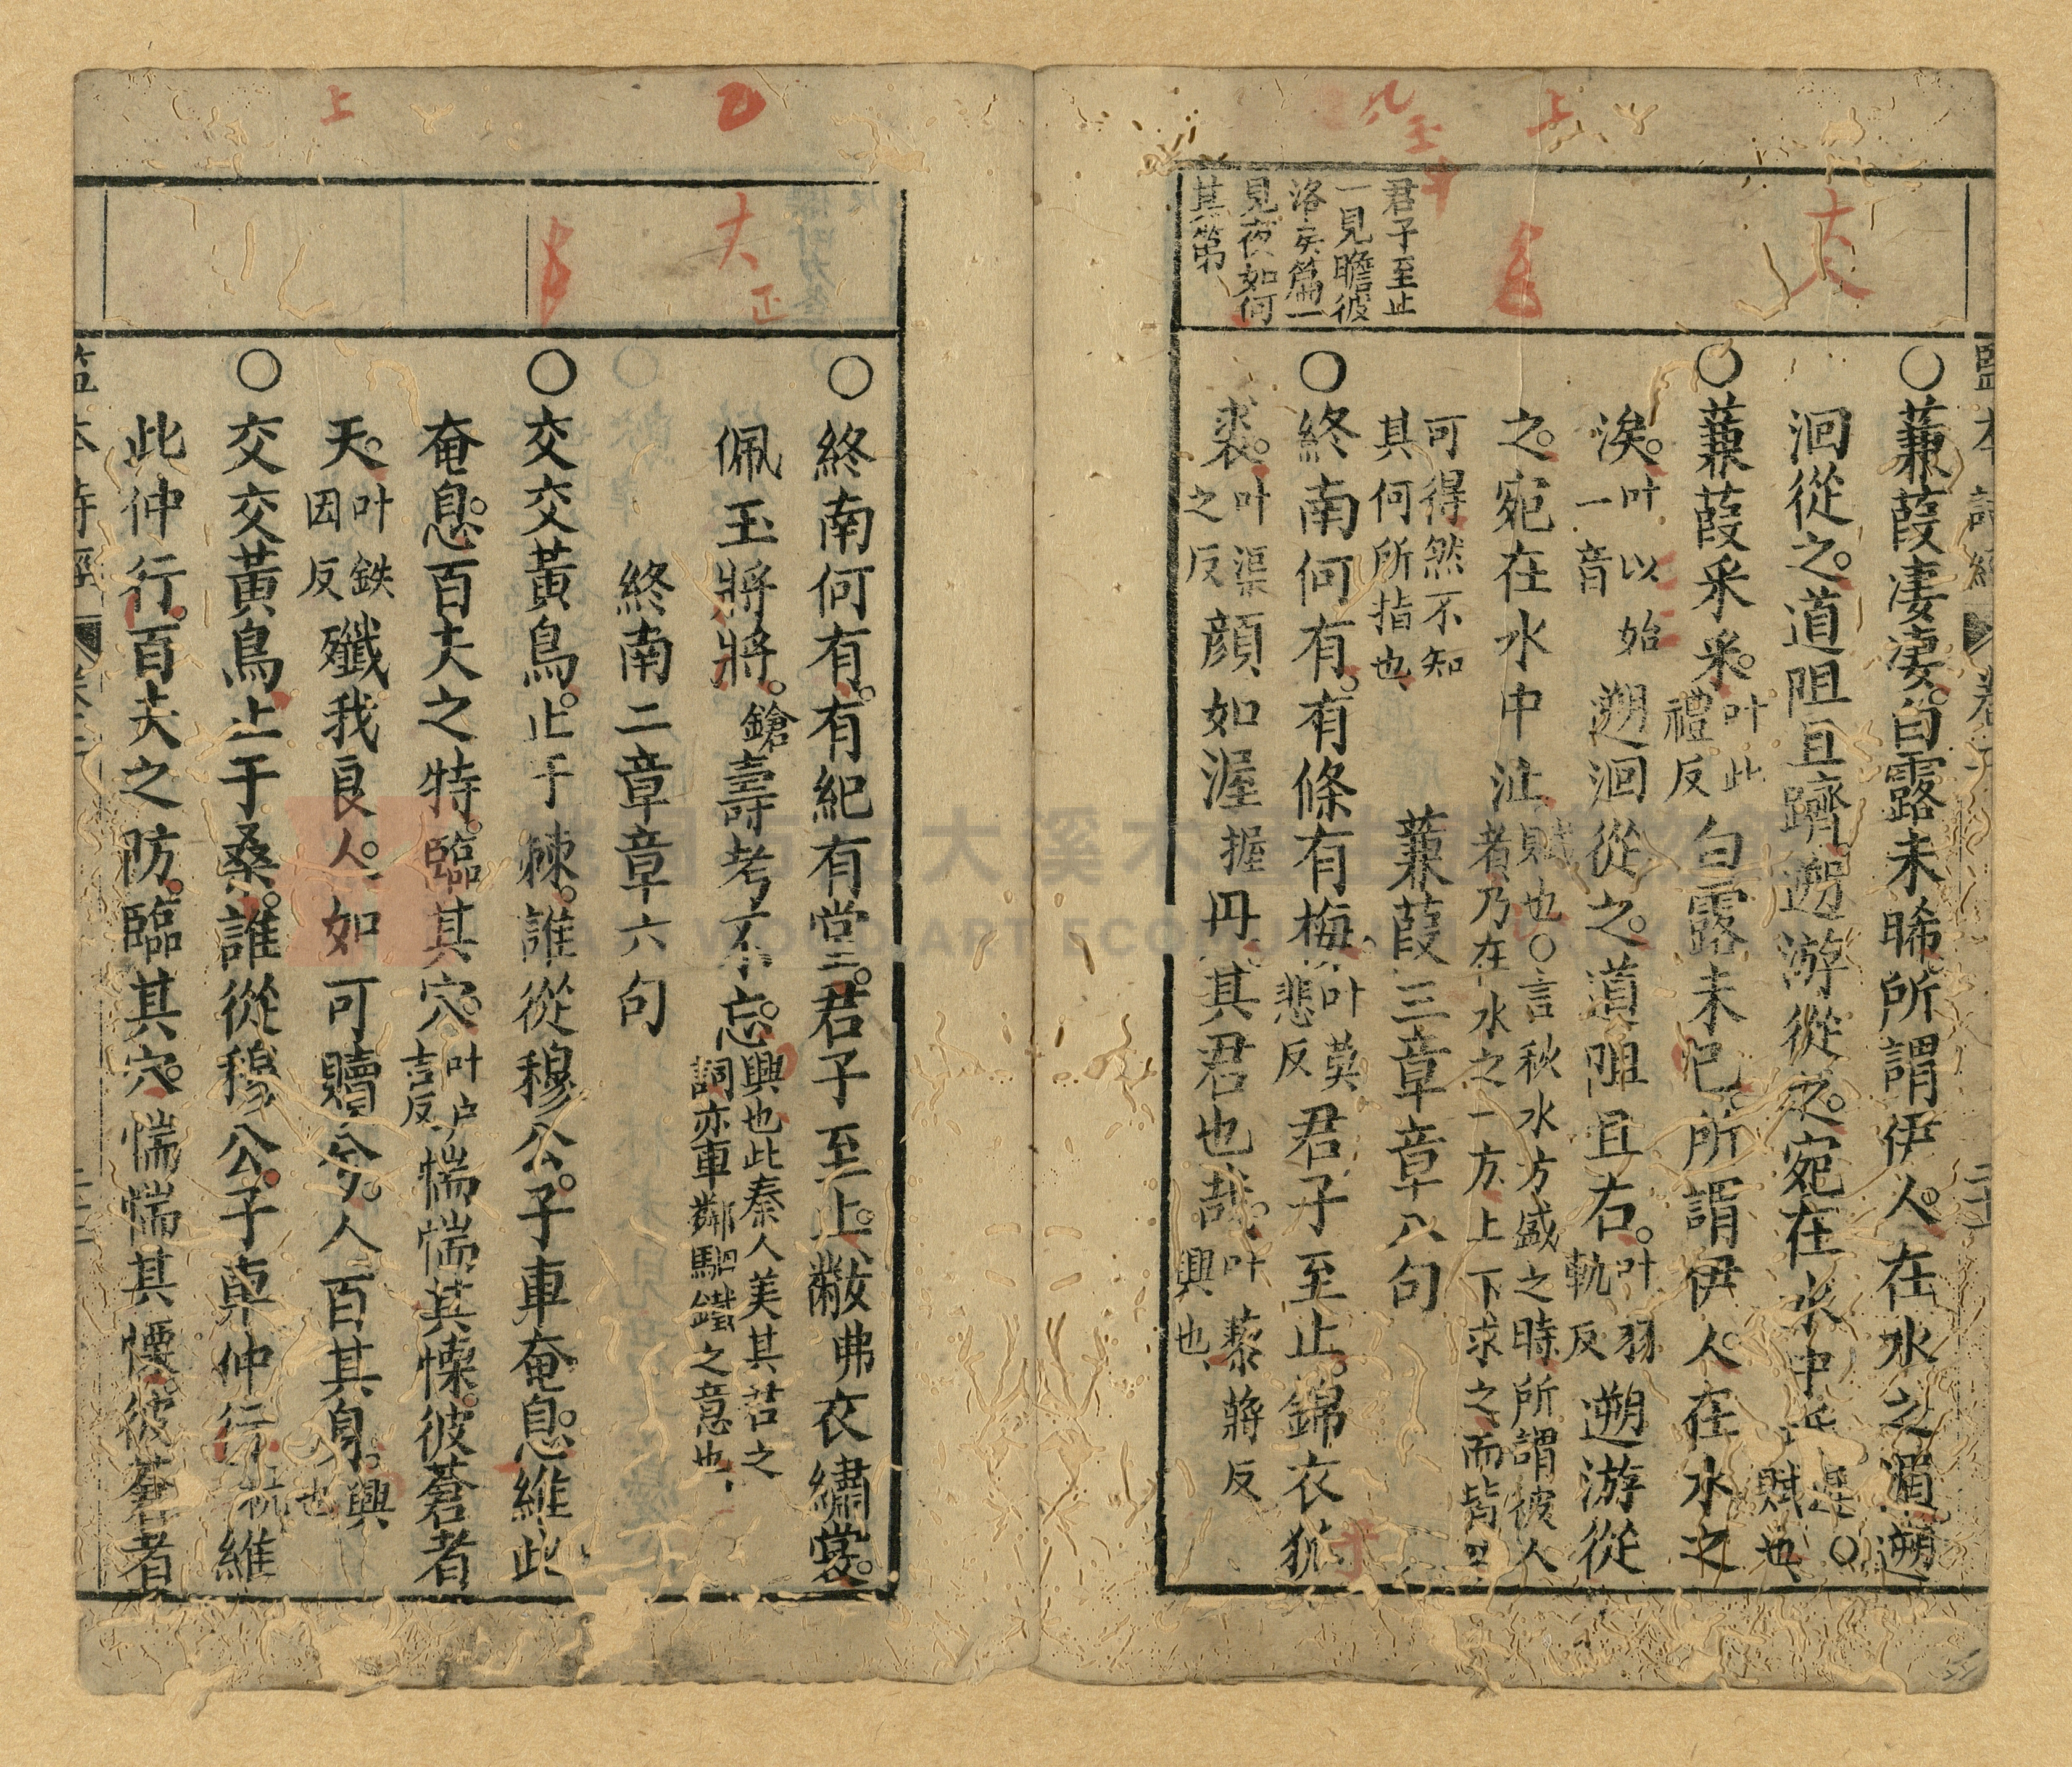 監本詩經 卷
○蒹葭凄凄白露未晞所謂伊人在水之湄遡
洄從之道阻且躋遡游從之宛在水中坻 賦也○
○蒹葭采采叶此禮反白露未已所謂伊人在水之
涘叶以始一音遡洄從之道阻且右叶羽軌反遡游從
之宛在水中沚賦也○言秋水方盛之時所謂彼人者乃在水之一方上下求之而皆不
可得然不知其何所指也
蒹葭三章章八句
○終南何有有條有梅叶莫悲反君子至止錦衣狐
裘叶渠之反顏如渥握丹其君也哉叶蔾蔣反興也
君子至止
一見瞻彼
洛矣篇一
見夜如何
其第
○終南何有有紀有堂君子至止黻弗衣繡裳
佩玉將將鎗壽考不忘興也此秦人美其君之詞亦車鄰駟鐵之意也
終南二章章六句
○交交黃鳥止于棘誰從穆公子車奄息維此
奄息百夫之特臨其穴叶戶惴惴其慄彼蒼者
天叶鉄因反殲我良人如可贖兮人百其身興也
○交交黃鳥止于桑誰從穆公子車仲行杭維
此仲行百夫之防臨其穴惴惴其慄彼蒼者
上
大
上
大
正